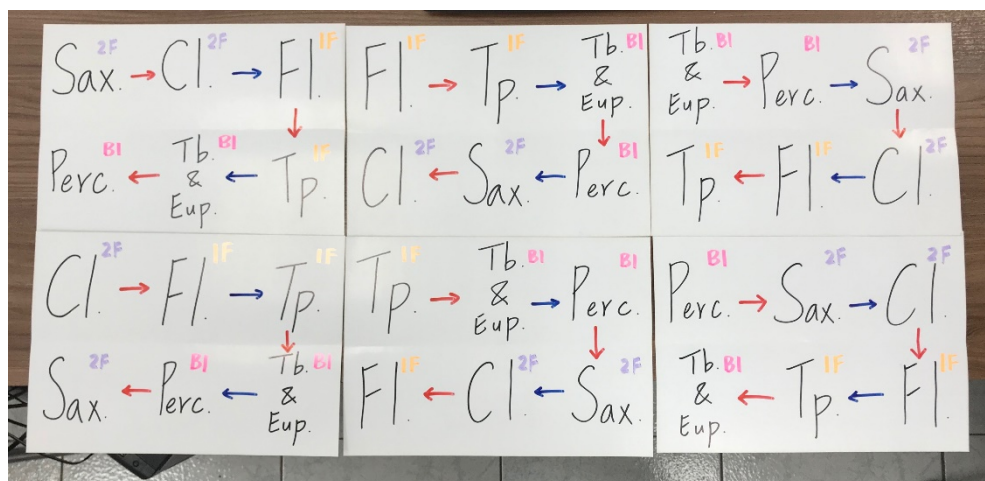 Sax. 2F → Cl. 2F → Fl. 1F
Perc. B1 ← Tb. & Eup. B1 ← Tp. 1F
Fl. 1F → Tp. 1F → Tb. & Eup. B1
Cl. 2F ← Sax. 2F ← Perc. B1
Tb. & Eup. B1 → Perc. B1 → Sax. 2F
Tp. 1F ← Fl. 1F ← Cl. 2F
Cl. 2F → Fl. 1F → Tp. 1F
Sax. 2F ← Perc. B1 ← Tb. & Eup. B1
Tp. 1F → Tb. & Eup. B1 → Perc. B1
Fl. 1F ← Cl. 2F ← Sax. 2F
Perc. B1 → Sax. 2F → Cl. 2F
Tb. & Eup. B1 ← Tp. 1F ← Fl. 1F